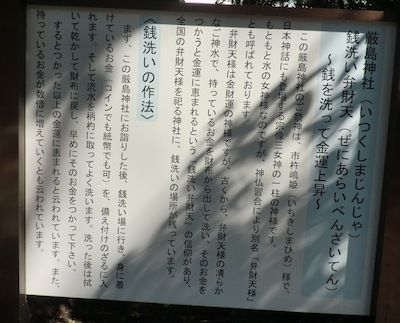 厳島神社(いつくしまじんじゃ)
銭洗い弁財天(ぜにあらいべんざいてん)
~銭を洗って金運上昇~
この厳島神社のご祭神は、市杵嶋姫(いちきしまひめ)様で、
日本神話にも登場する宗像三女神の一柱の神様です。
もともと水の女神様なのですが、神仏習合により別名「弁財天様」
とも呼ばれております。
弁財天様は金財運の神様ですが、古くから、弁財天様の清らか
なご神水で、持っているお金を財布から出して洗い、そのお金を
つかうと金運に恵まれるという、「銭洗い弁財天」の信仰があり、
全国の弁財天様を祀る神社に、銭洗いの場所が残っています。
〈銭洗いの作法〉
まず、この厳島神社にお詣りした後、銭洗い場に行き、身に着
けているお金(コインでも紙幣でも可)を、備え付けのざるに入
れます。そして流水を柄杓に取ってよく洗います。洗った後は拭
いて乾かして財布に戻し、早めにそのお金をつかって下さい。
するとつかった以上の金運に恵まれると云われています。また、
持っているお金が数倍に増えていくとも云われています。